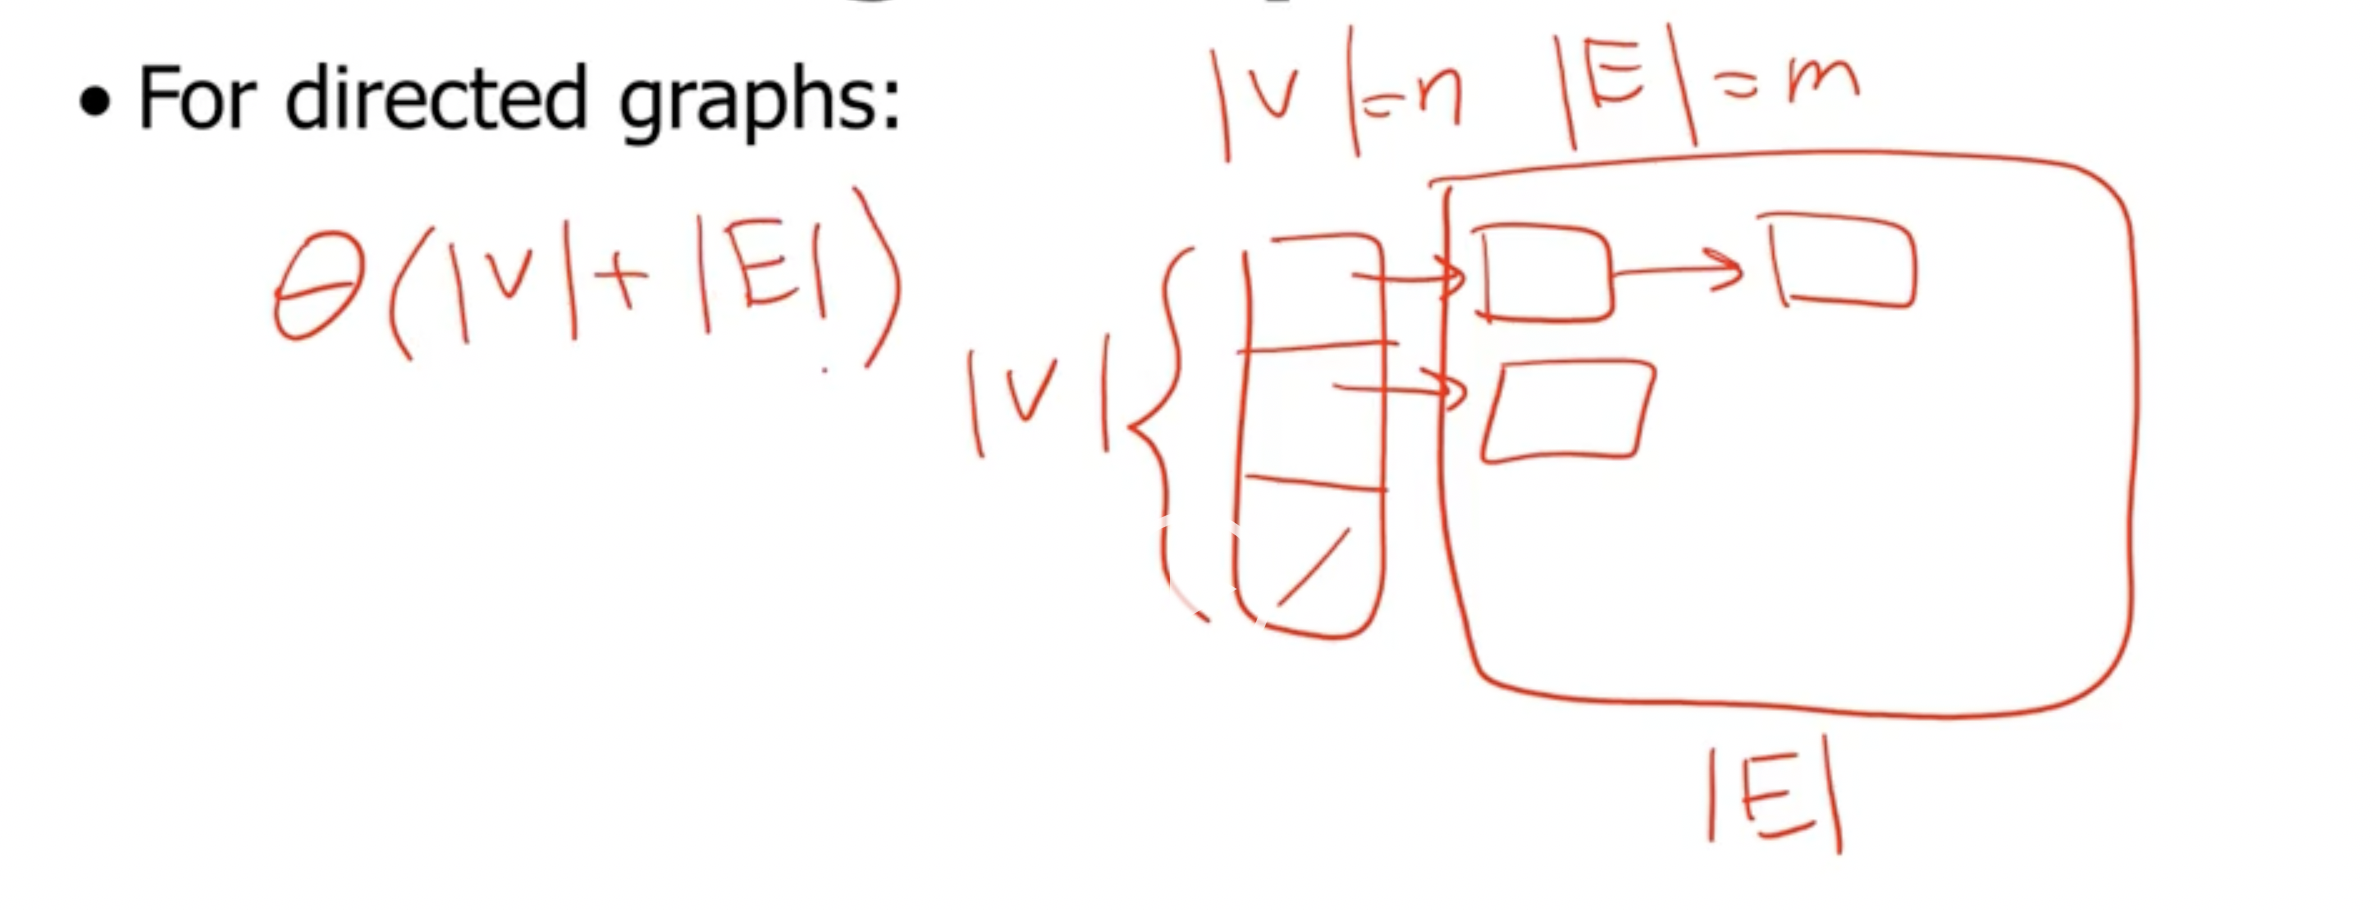 • For directed graphs:
|V|=n |E|=m
θ(|V|+|E|)
|V|
|E|